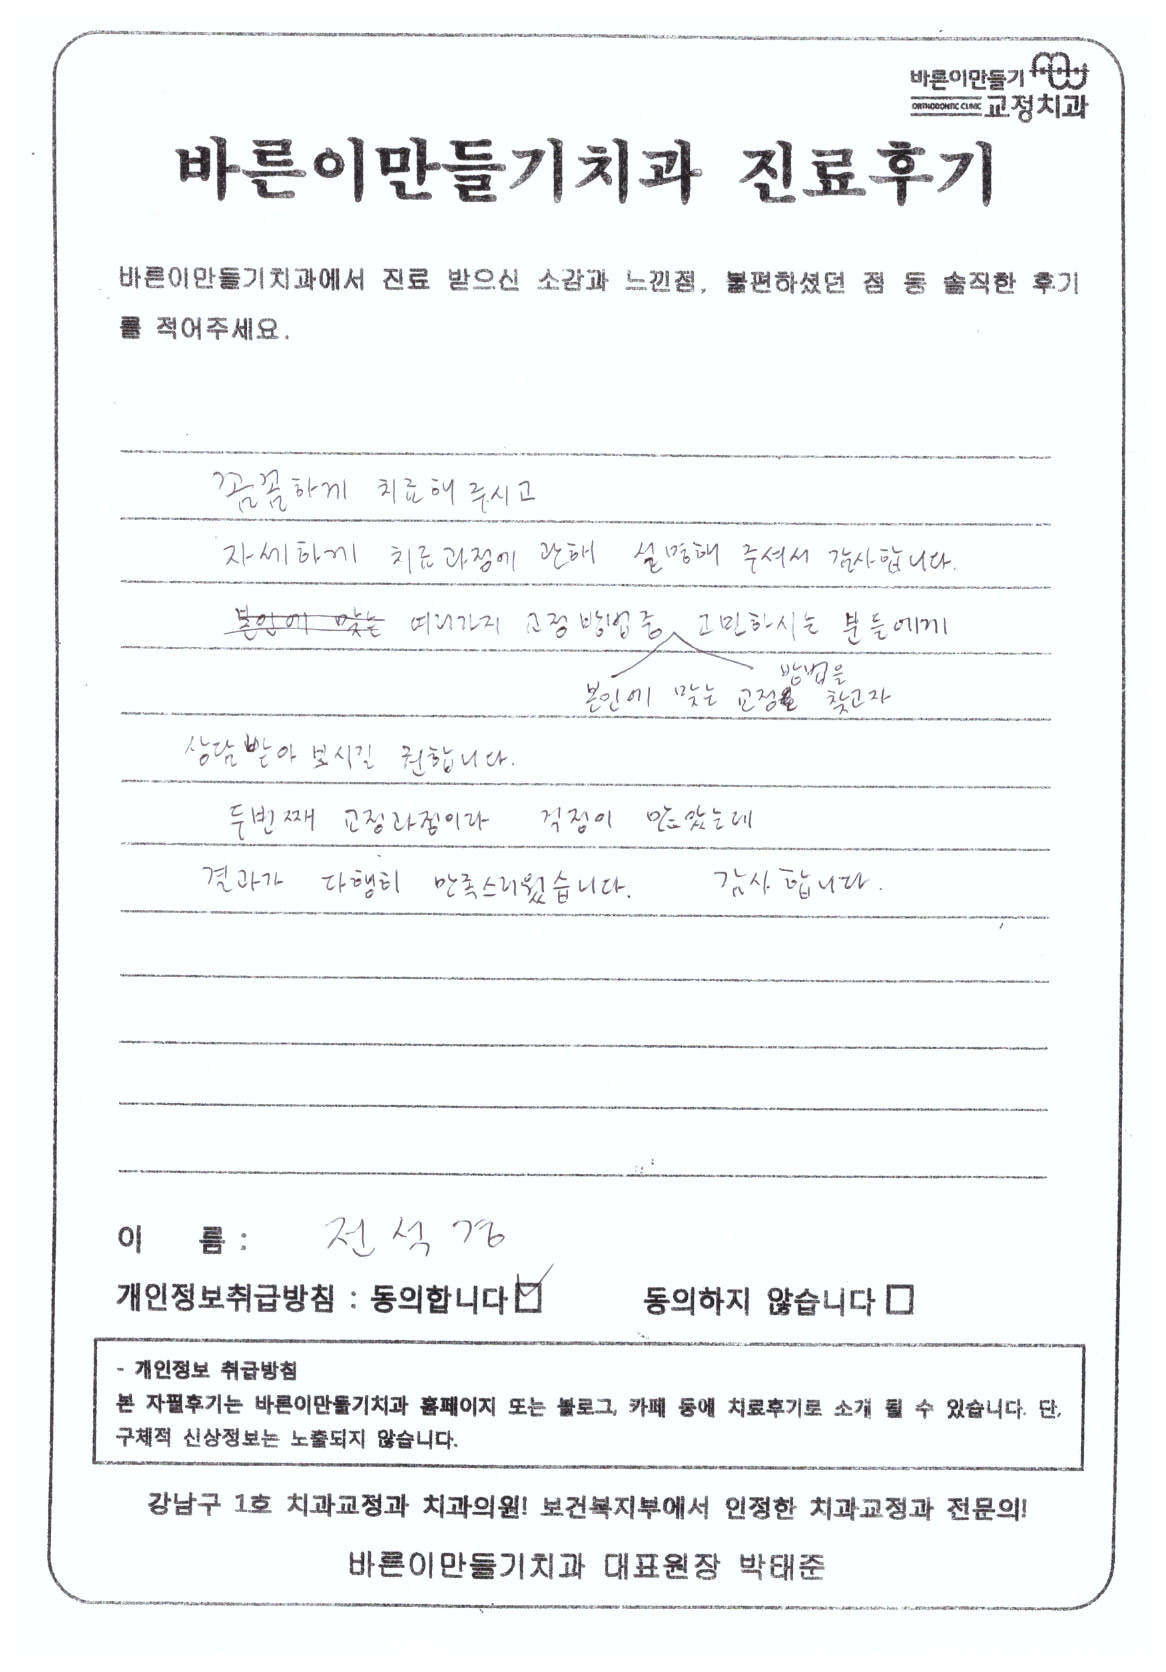 바른이만들기
ORTHODONTIC CLINIC 교정치과
바른이만들기치과 진료후기
바른이만들기치과에서 진료 받으신 소감과 느낀점, 불편하셨던 점 등 솔직한 후기
를 적어주세요.
꼼꼼하게 치료해 주시고
자세하게 치료과정에 관해 설명해 주셔서 감사합니다.
본인에 맞는 여러가지 교정 방법중 고민하시는 분들에게
방법을
본인에 맞는 교정을 찾고자
상담받아 보시길 권합니다.
두번째 교정과정이라 걱정이 많았는데
결과가 다행히 만족스러웠습니다. 감사합니다.
이 름 : 전석경
개인정보취급방침 : 동의합니다 동의하지 않습니다
- 개인정보 취급방침
본 자필후기는 바른이만들기치과 홈페이지 또는 블로그, 카페 등에 치료후기로 소개 될 수 있습니다. 단,
구체적 신상정보는 노출되지 않습니다.
강남구 1호 치과교정과 치과의원! 보건복지부에서 인정한 치과교정과 전문의!
바른이만들기치과 대표원장 박태준